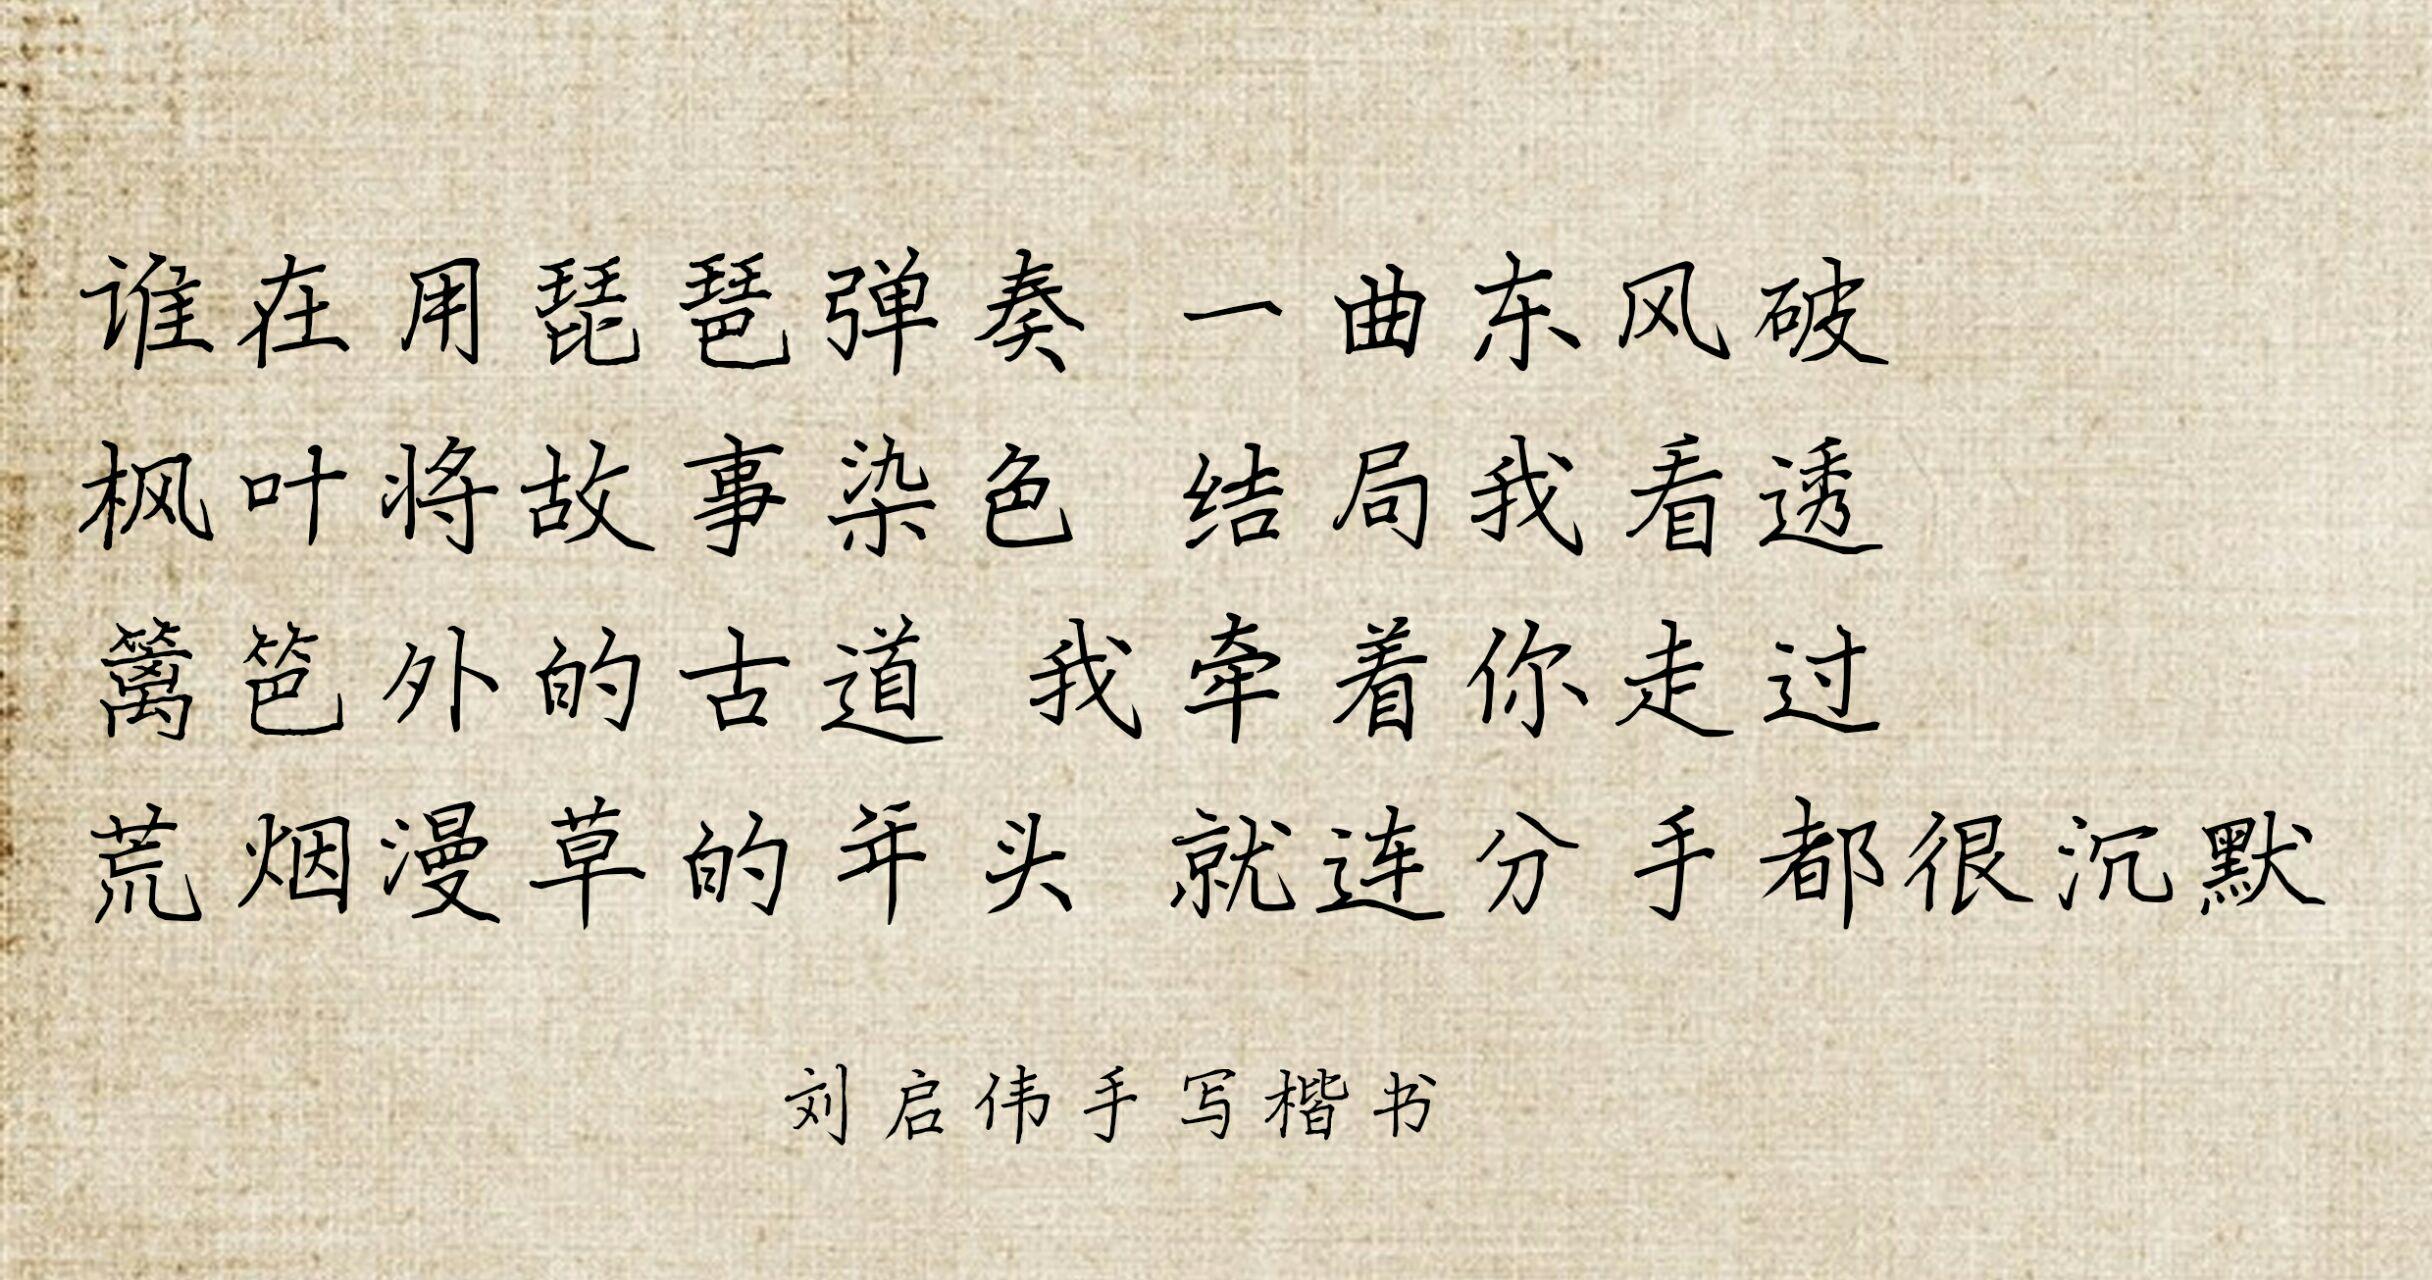 谁在用琵琶弹奏 一曲东风破
枫叶将故事染色 结局我看透
篱笆外的古道 我牵着你走过
荒烟漫草的年头 就连分手都很沉默
刘启伟手写楷书